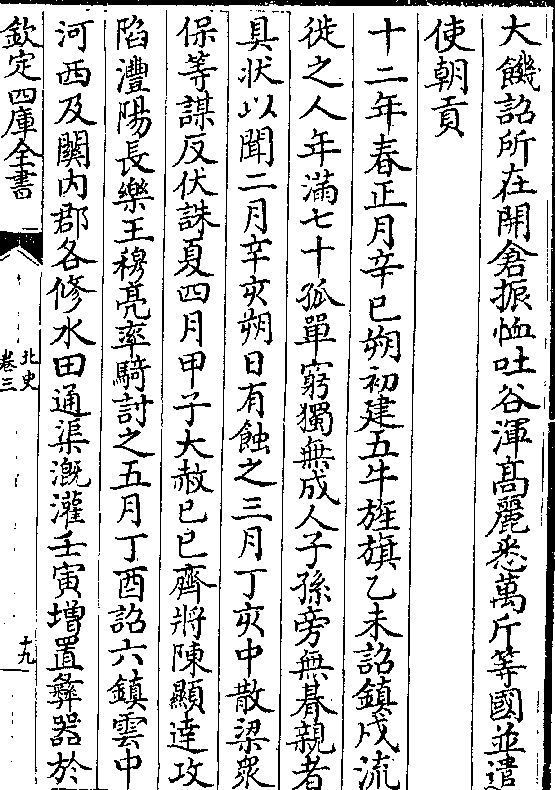 大饑詔所在開倉振恤吐谷渾髙麗悉萬斤等國並遣
使朝貢
十二年春正月辛巳朔初建五牛旌旗乙未詔鎮戍流
徙之人年滿七十孤單窮獨無成人子孫旁無朞親者
具狀以聞二月辛亥朔日有蝕之三月丁亥中散梁衆
保等謀反伏誅夏四月甲子大赦已巳齊將陳顯達攻
陷澧陽長樂王穆亮率騎討之五月丁酉詔六鎮雲中
河西及關内郡各修水田通渠溉灌壬寅増置彝器於
欽定四庫全書
北史
卷三
十九